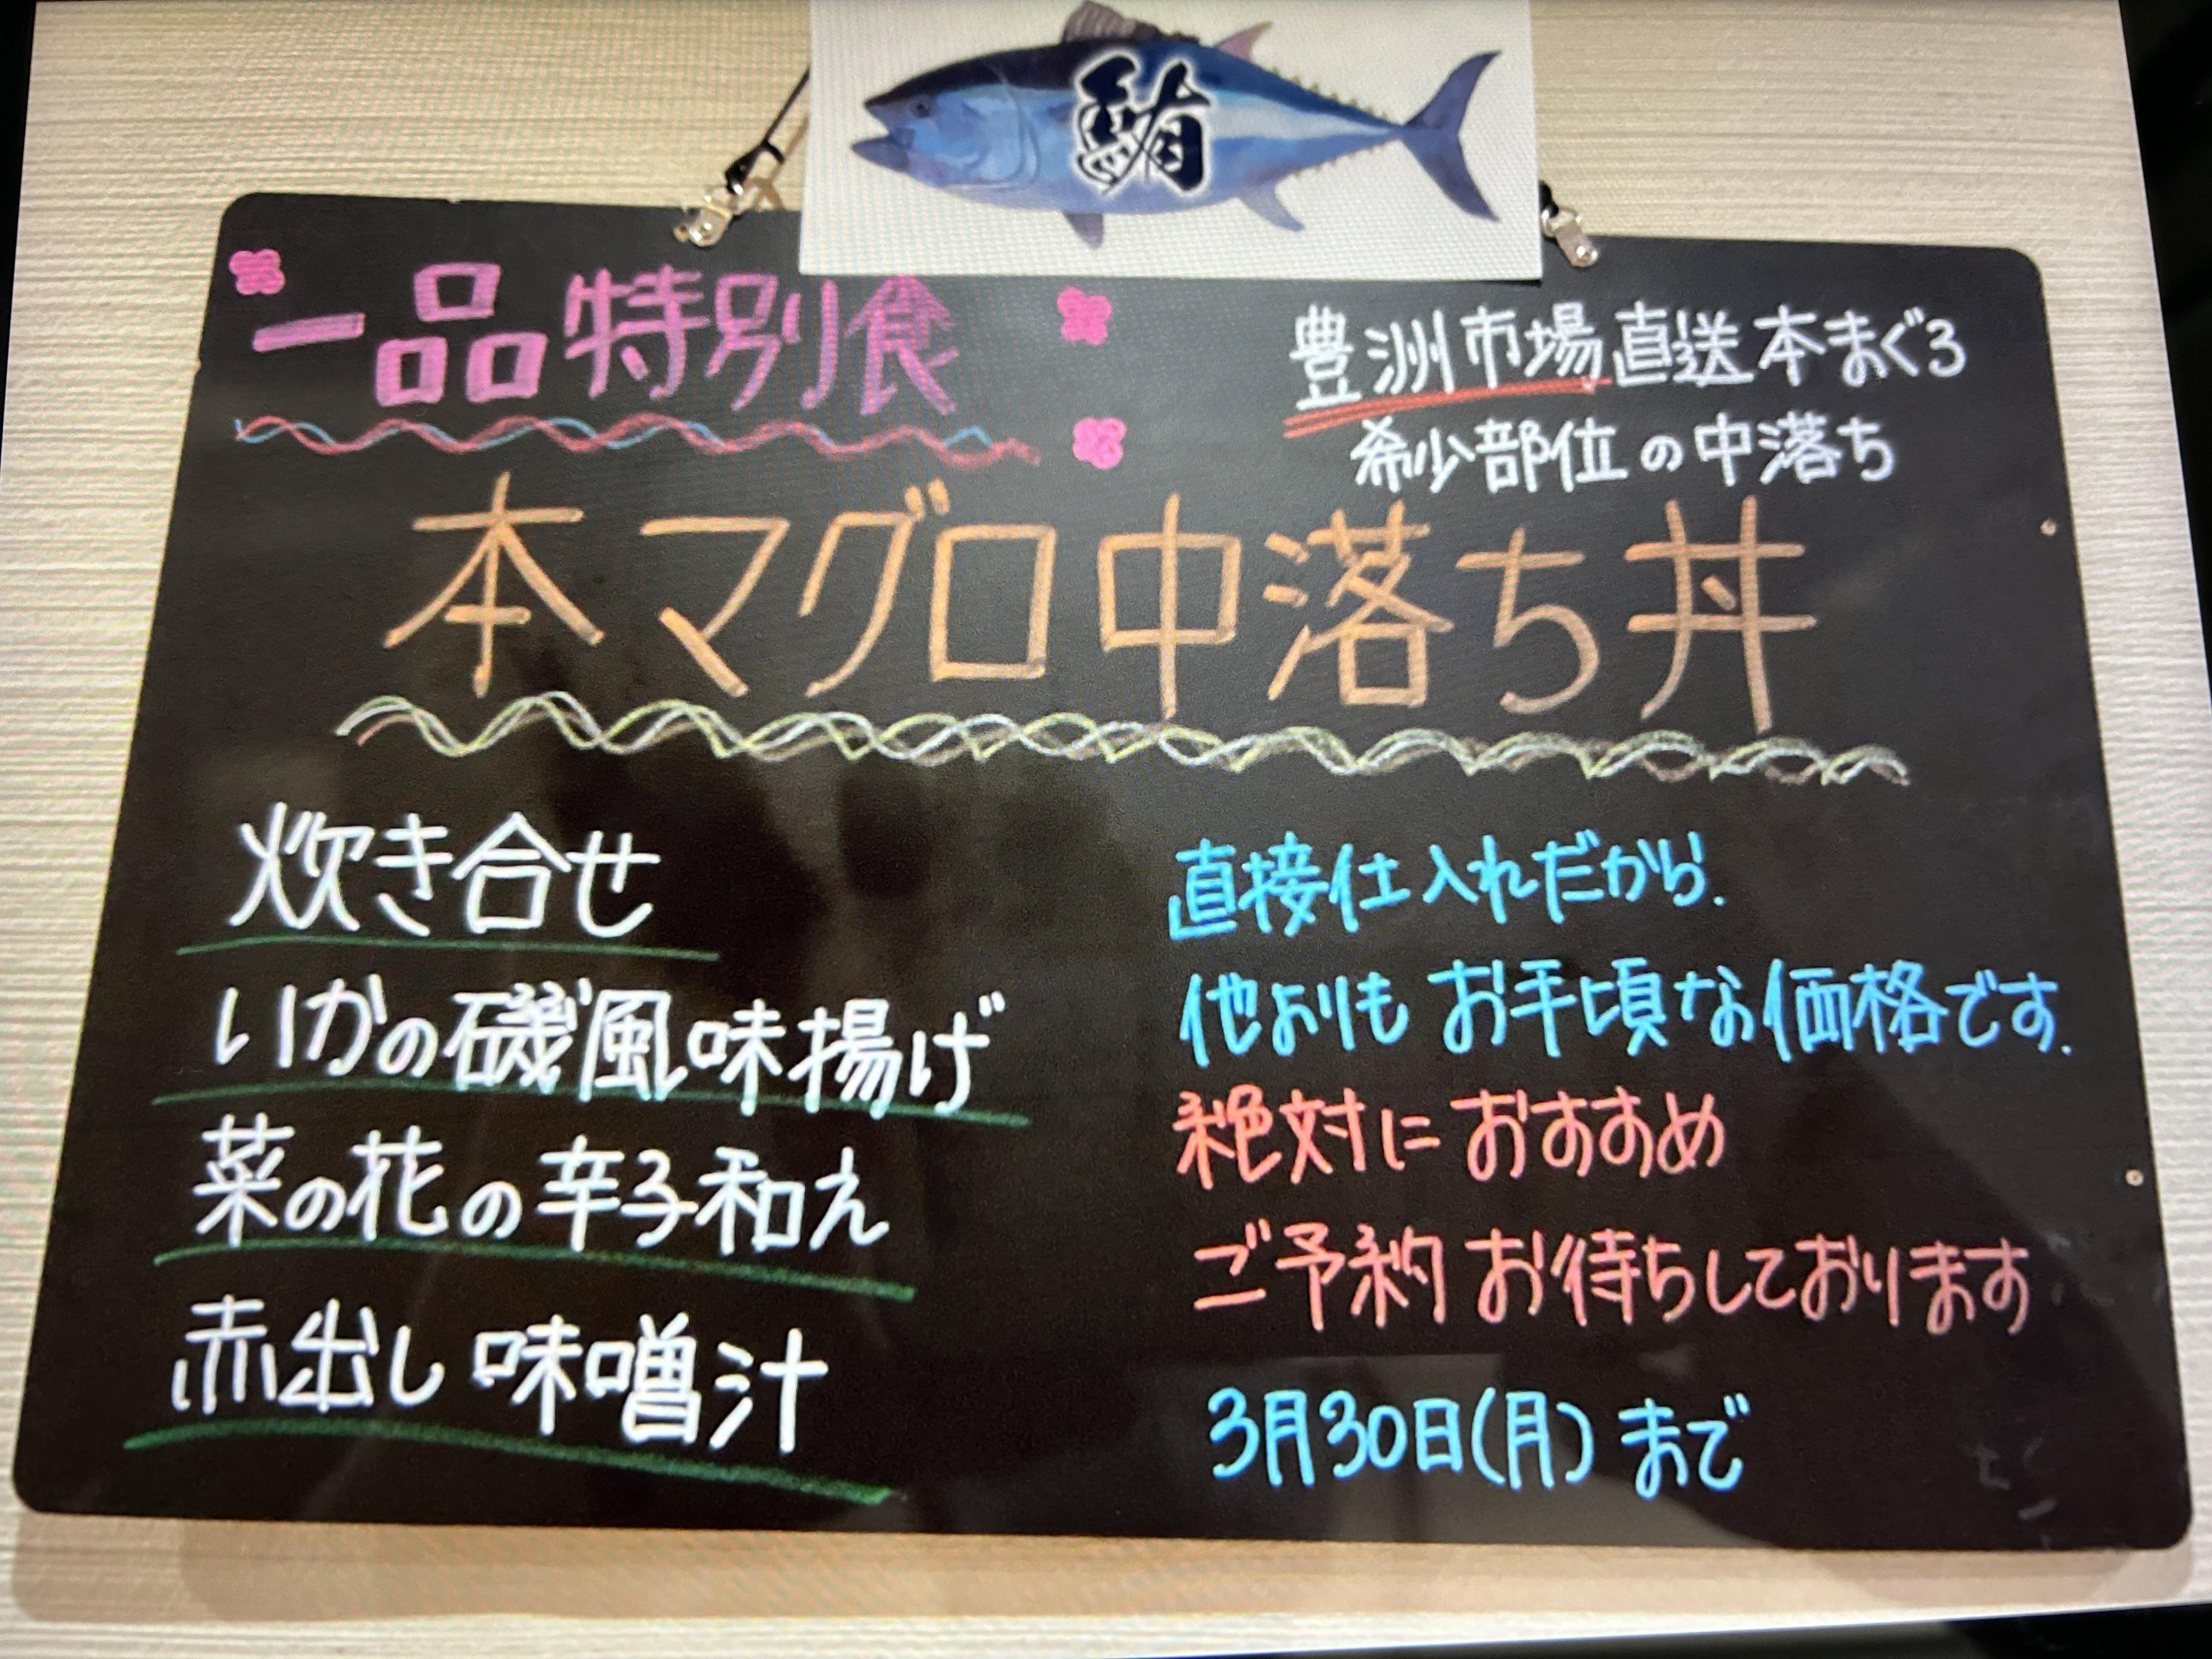 鮪
一品特別食
豊洲市場直送本まぐろ
希少部位の中落ち
本マグロ中落ち丼
炊き合せ
いかの磯風味揚げ
菜の花の辛子和え
赤出し味噌汁
直接仕入れだから.
他よりもお手頃な価格です.
絶対におすすめ
ご予約お待ちしております
3月30日(月)まで